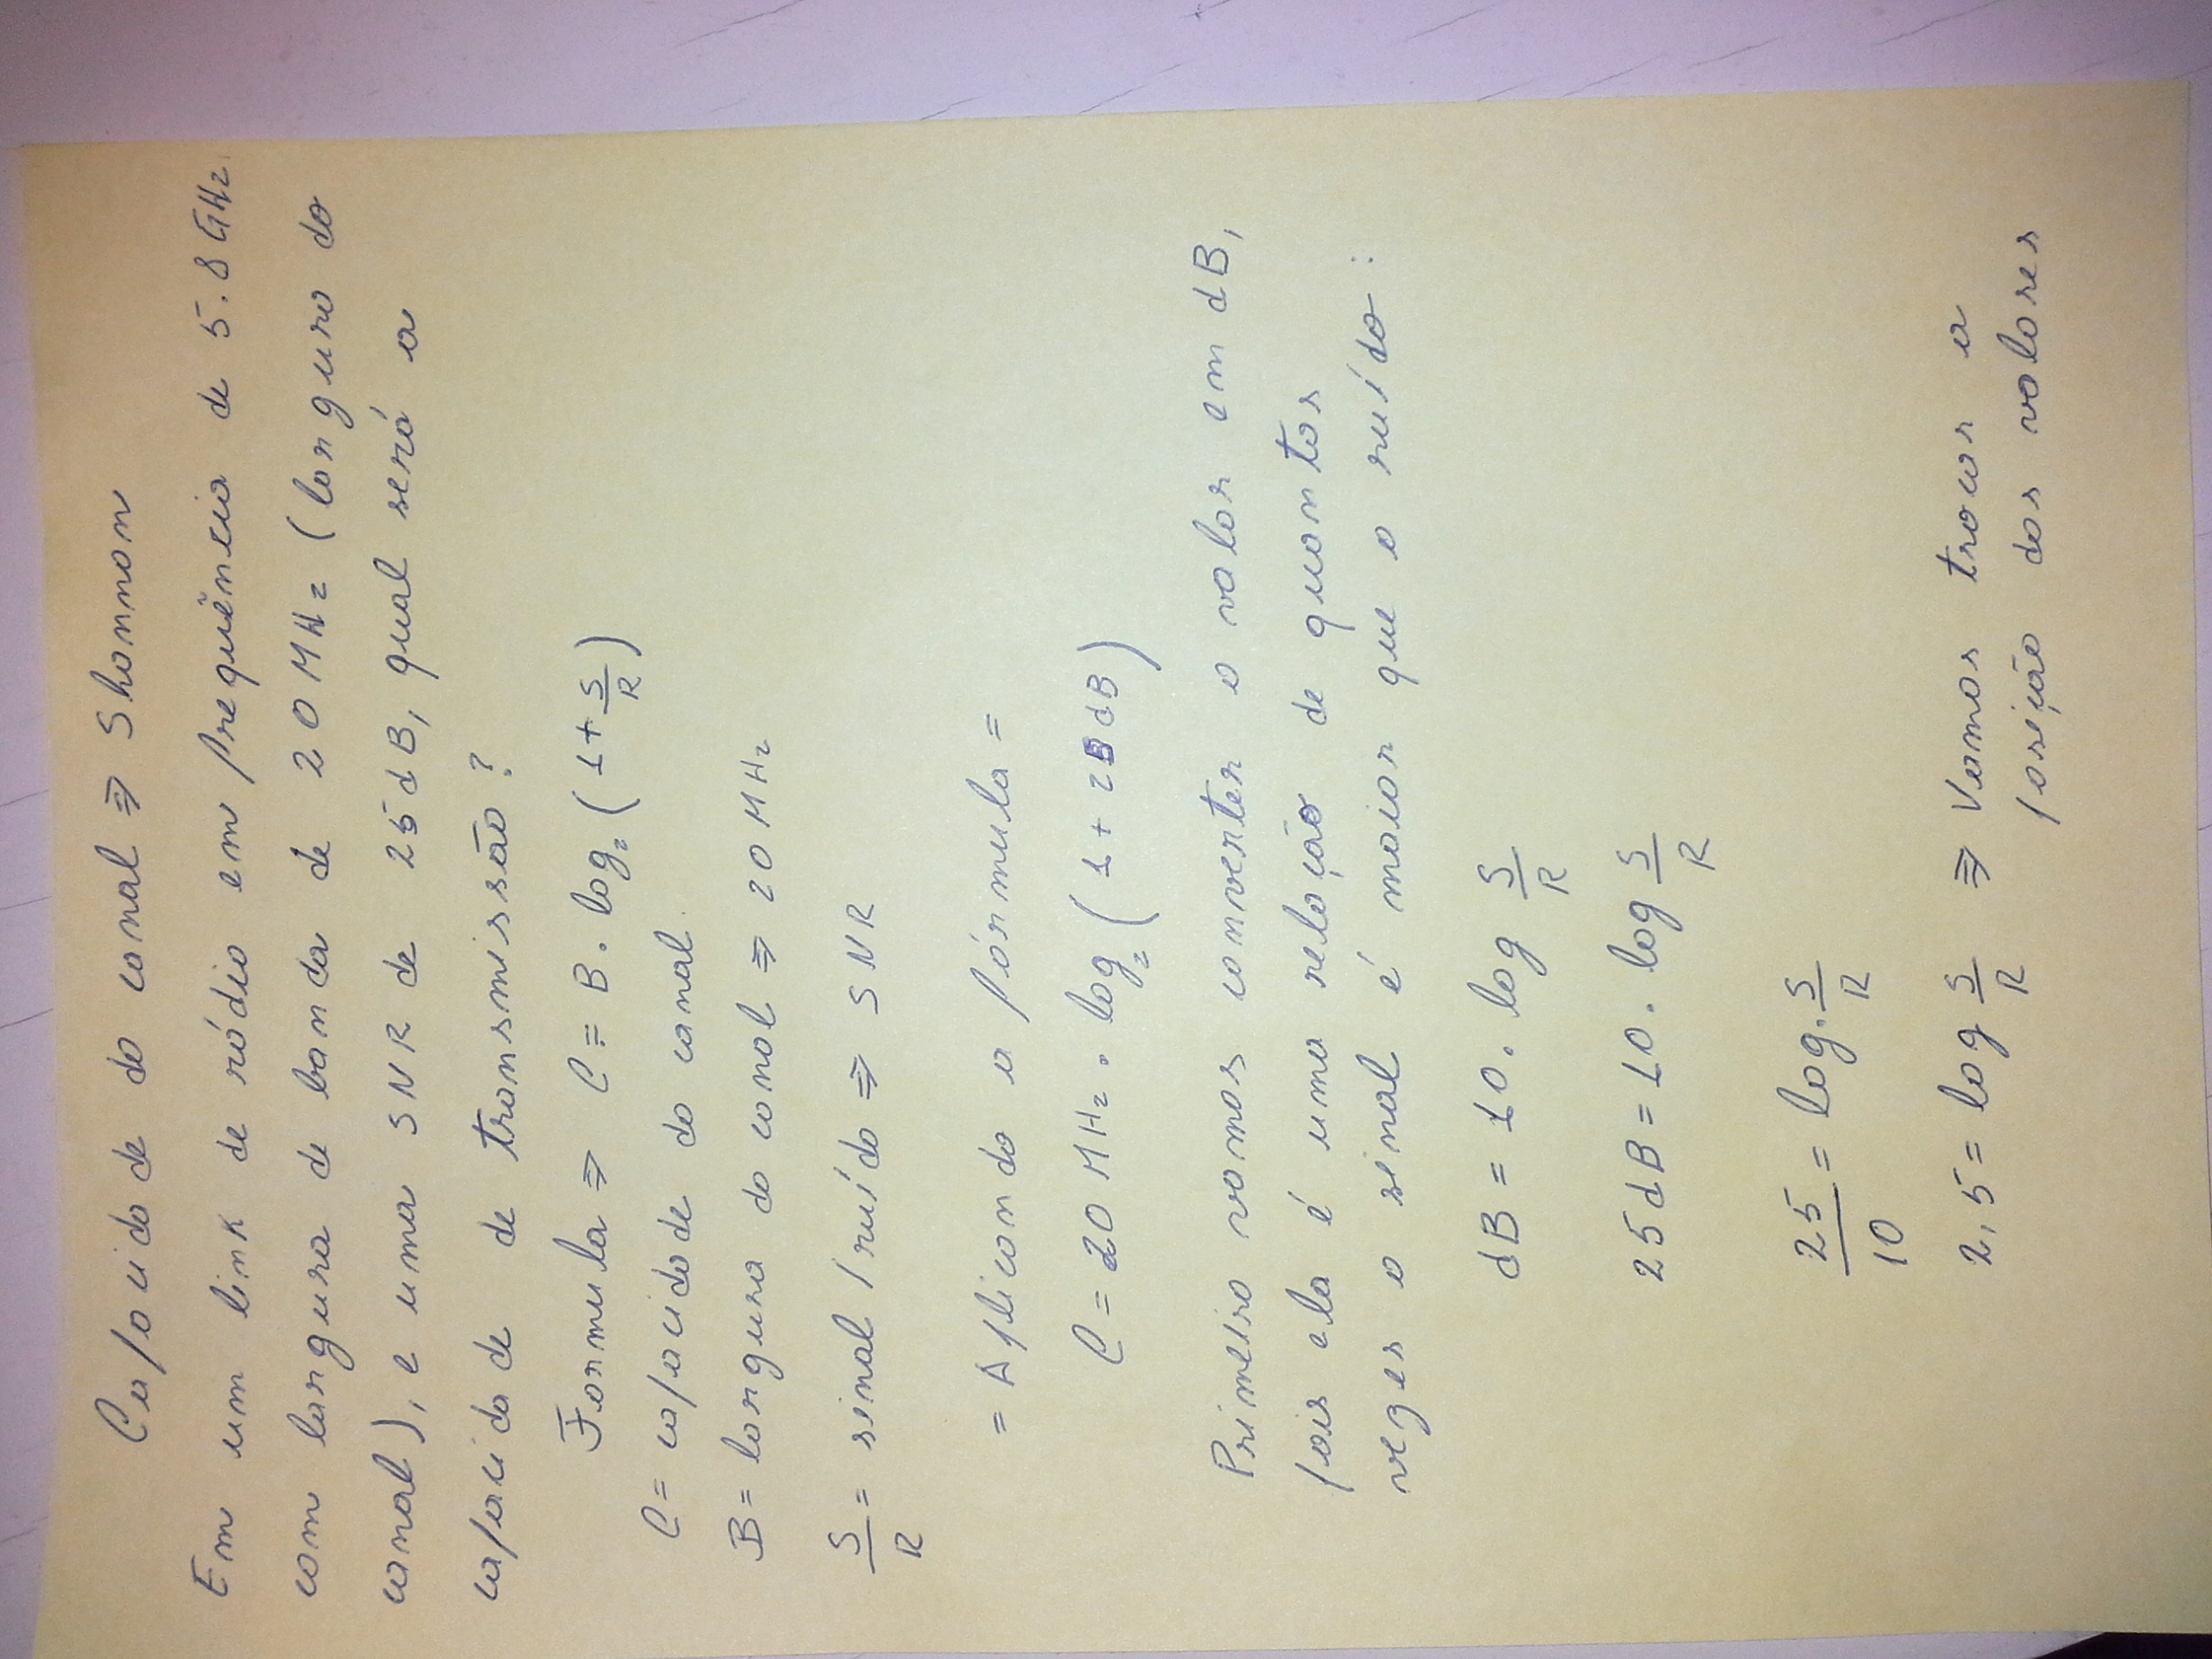 Capacidade do canal ⇒ Shannon
Em um link de rádio em frequência de 5.8 GHz
com largura de banda de 20 MHz (largura do
canal), e uma SNR de 25 dB, qual será a
capacidade de transmissão?
Formula ⇒ C = B . log₂ (1 + S/R)
C = capacidade do canal
B = largura do canal ⇒ 20 MHz
S/R = sinal/ruído ⇒ SNR
= Aplicando a fórmula =
C = 20 MHz . log₂ (1 + 25 dB)
Primeiro vamos converter o valor em dB,
pois ela é uma relação de quantas
vezes o sinal é maior que o ruído:
dB = 10 . log S/R
25 dB = 10 . log S/R
25/10 = log . S/R
2,5 = log S/R ⇒ Vamos trocar a
posição dos valores